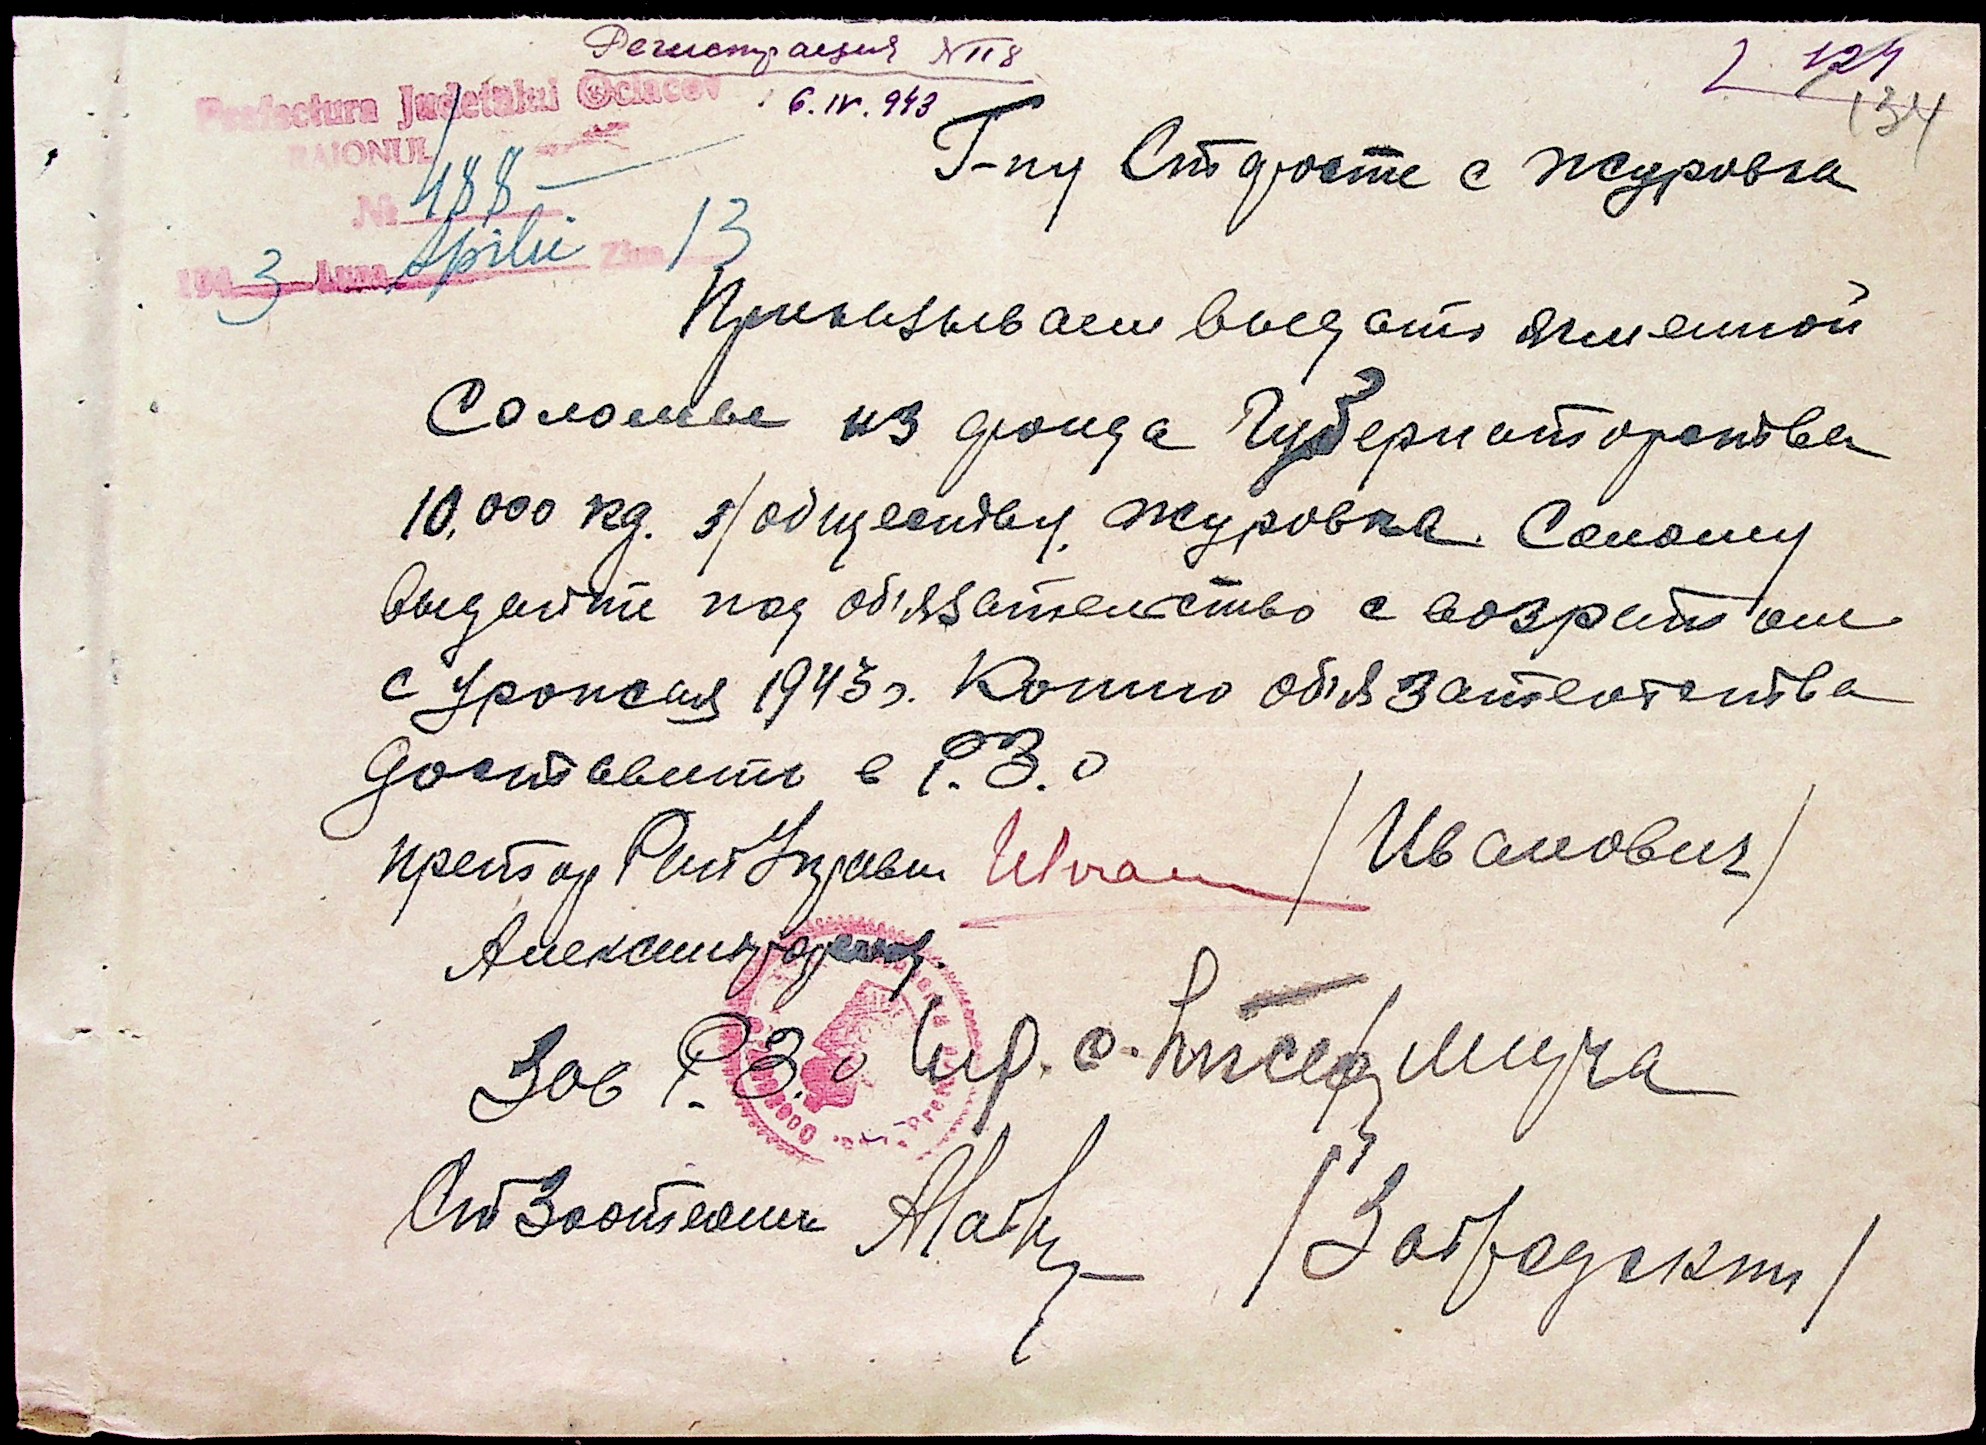 Регистрация №118
6.IV.943
2 124
134
Prefectura Judetului Ociacov
RAIONUL
№ 488
194 3 Luna Aprilie Ziua 13
Г-ну Старосте с Журовка
Приказываем выдать ячменной
Соломы из фонда Губернаторства
10,000 кд. з/обществу. Журовка. Солому
выдайте под обязательство с возратом
с урожая 1943 г. Копию обязательства
доставить в Р.З.о
Претор Рай Управы /Иванович/
Александродар.
Зав Р.З.о
Ст Зоотехник